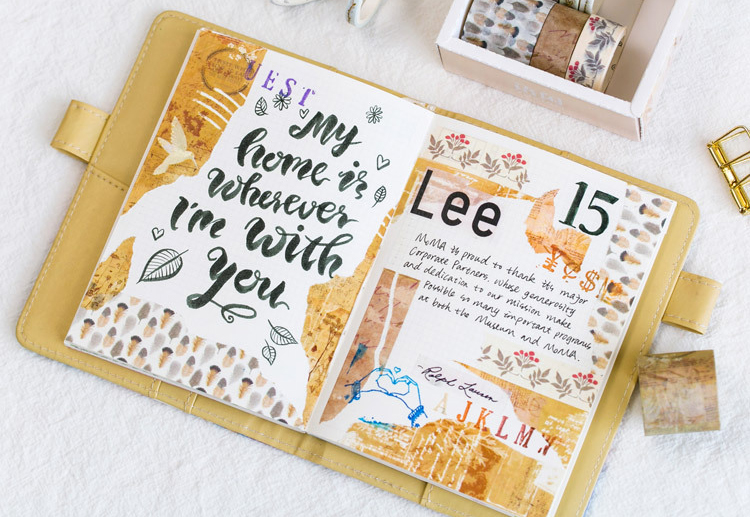 UEST
My
home is
wherever
I'm with
you
Lee
15
MoMA is proud to thank its major
Corporate Partners, whose generosity
and dedication to our mission make
possible so many important programs
at both the Museum and MoMA.
¥€$
-Ralph Lauren
AJKLMN